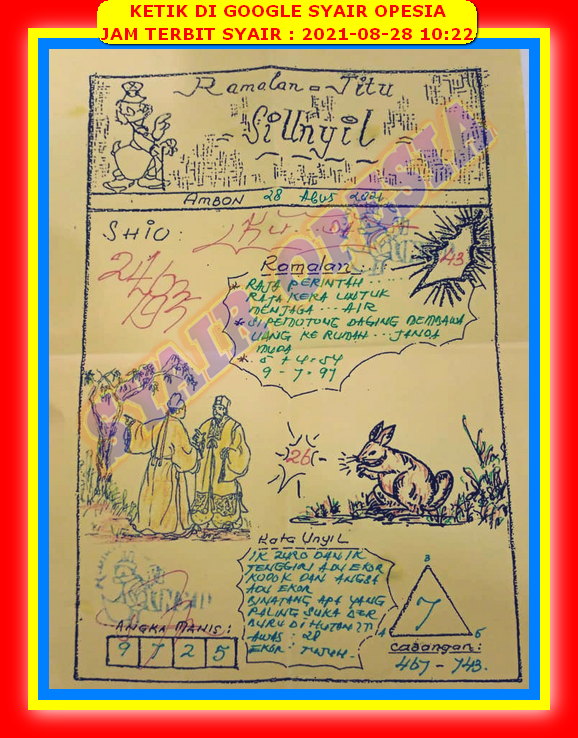 KETIK DI GOOGLE SYAIR OPESIA
JAM TERBIT SYAIR : 2021-08-28 10:22
Ramalan = Jitu
Si Unyil
AMBON 28 AGUS 2021
SHIO :
SYAIR OPESIA
43
Ramalan :
* RAJA PERINTAH ....
RAJA KERA UNTUK
MENJAGA ... AIR
* SI PEMOTONG DAGING MEMBAWA
UANG KE RUMAH ... JANDA
MUDA
* 5 + 4 = 54
9 - 7 = 97
26
Kata Unyil
TENGGIRI ADU EKOR
KODOK DAN ANGSA
ADU EKOR
BINATANG APA YANG
PALING SUKA BER
BURU DI HUTAN ???
AWAS : 28
EKOR : TUJUH
ANGKA MANIS :
9 7 2 5
3
7
4 5
Cadangan :
467 - 743.